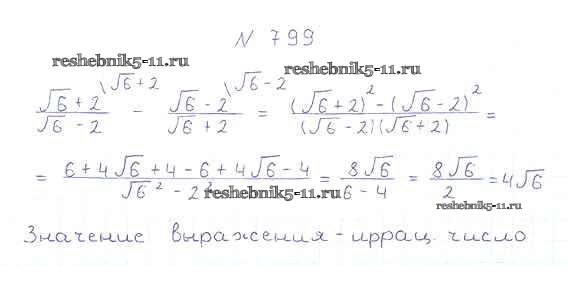 N 799
reshebnik5-11.ru
reshebnik5-11.ru
(√6 + 2)/(√6 - 2) \√6 + 2 - (√6 - 2)/(√6 + 2) \√6 - 2 = ((√6 + 2)² - (√6 - 2)²)/((√6 - 2)(√6 + 2)) =
= (6 + 4√6 + 4 - 6 + 4√6 - 4)/(√6² - 2²) = 8√6/(6 - 4) = 8√6/2 = 4√6
reshebnik5-11.ru
reshebnik5-11.ru
Значение выражения - иррац. число